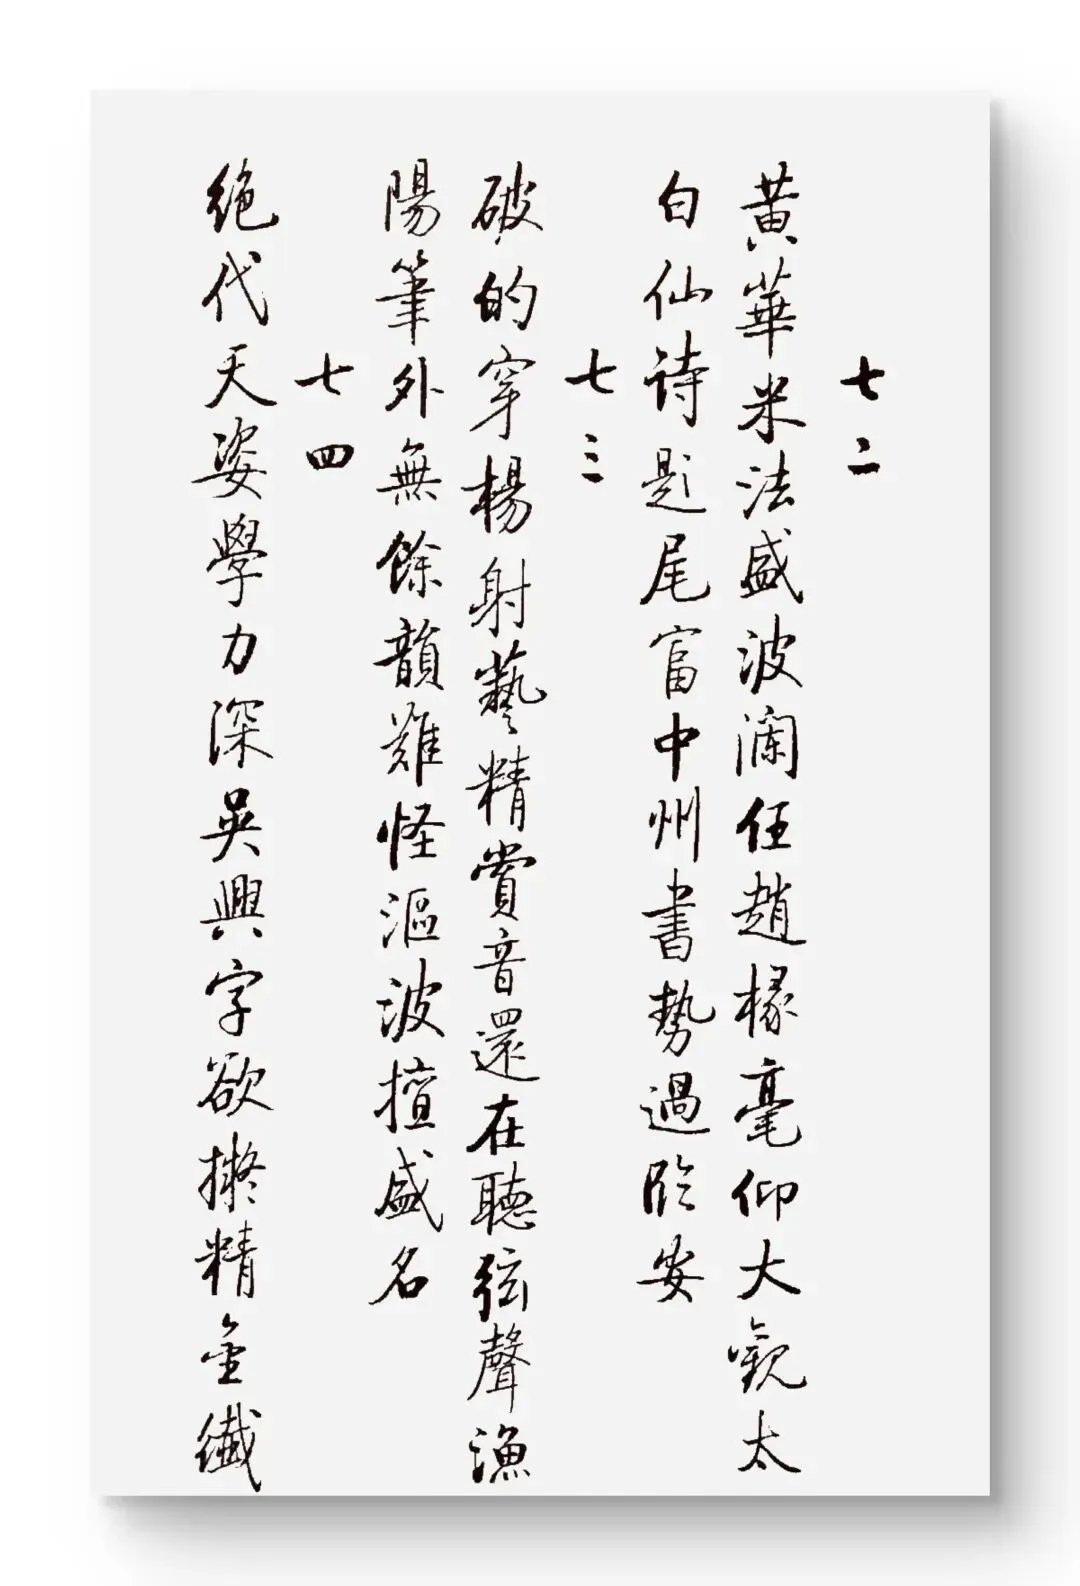 七二
黄華米法盛波瀾任趙椽毫仰大觀太
白仙诗題尾富中州書勢過臨安
七三
破的穿楊射藝精賞音還在聽弦聲漁
陽筆外無餘韻難怪漚波擅盛名
七四
绝代天姿學力深吳興字欲擬精金纖